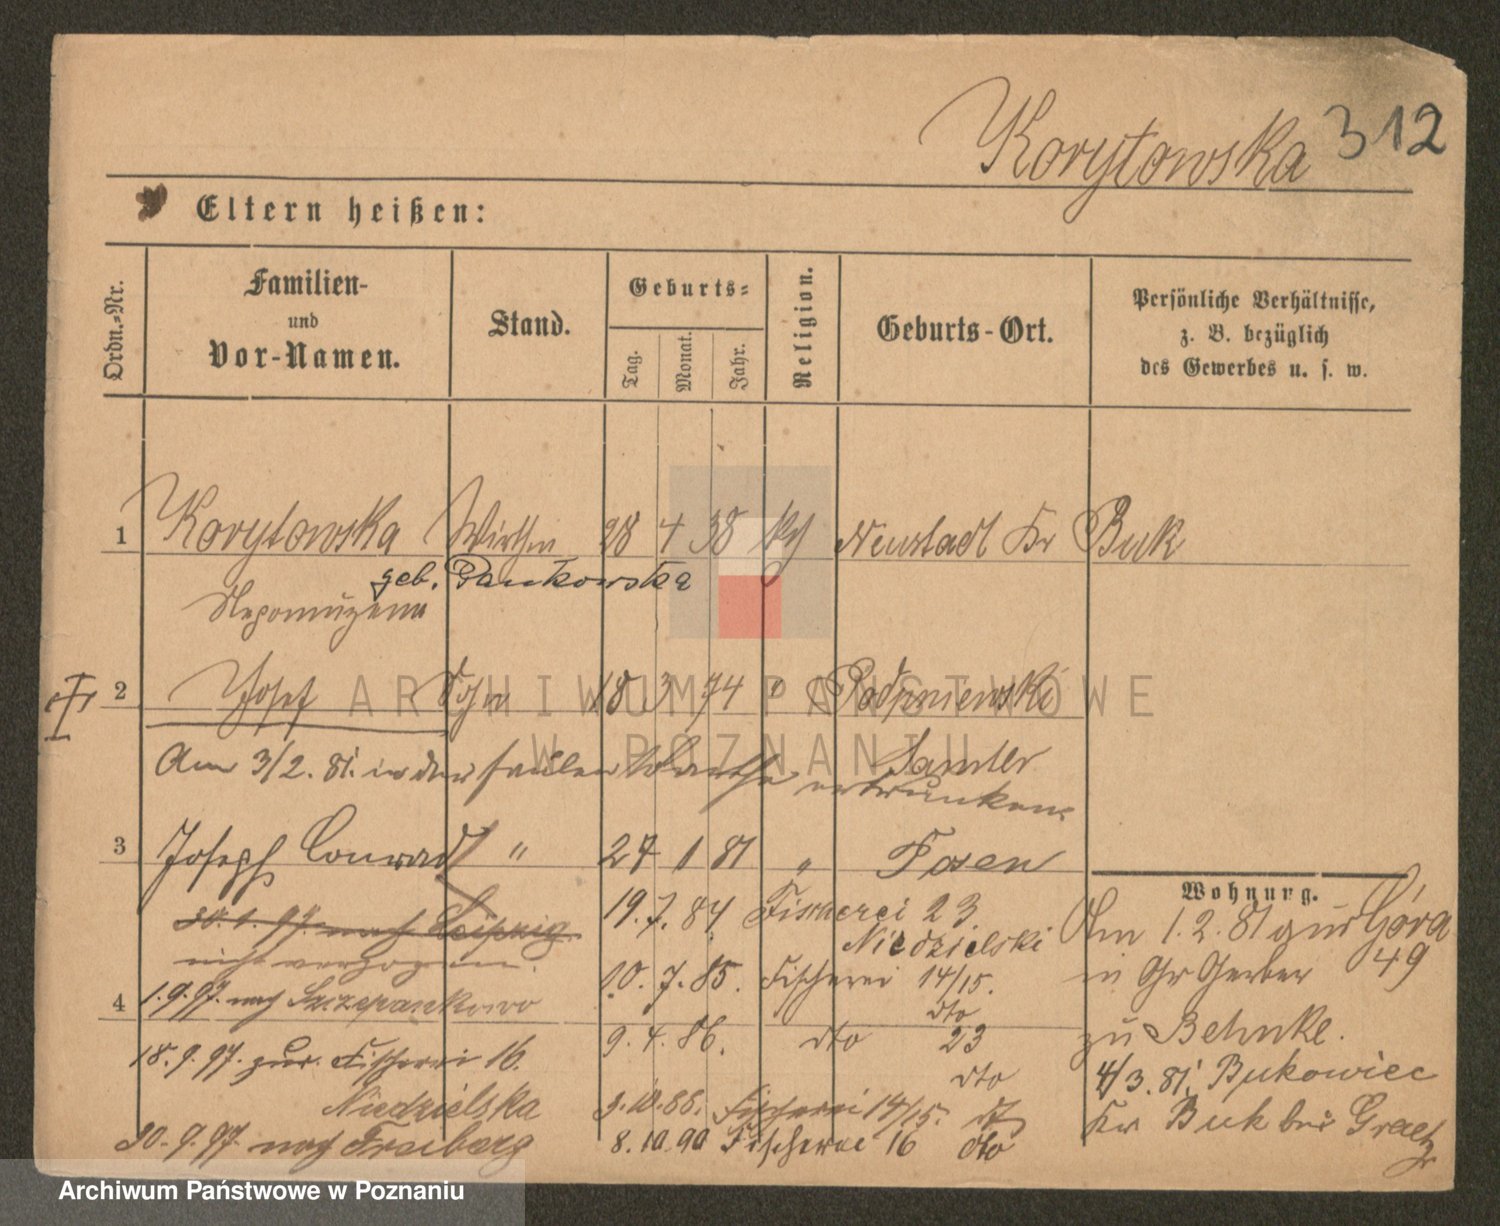 Korytowska 312
Eltern heißen:
Ordn.-Nr.
Familien-
und
Vor-Namen.
Stand.
Geburts-
Tag.
Monat.
Jahr.
Religion.
Geburts-Ort.
Persönliche Verhältnisse,
z. B. bezüglich
des Gewerbes u. s. w.
1 Korytowska Wirthin 28 4 38 kth Neustadt Kr Buk
geb. Pankowska
Nepomuzena
2 Josef Sohn 18 3 74 " Podpniewski
Samter
Am 3/2. 81. in der faulen Warthe ertrunken.
3 Joseph Conrad " 27 1 81 " Posen
Wohnung.
30. 1. 97. nach Leipzig
nicht verzogen.
4 1.9.97. nach Szczepankowo
18. 9. 97. zur. Fischerei 16.
Niedzielska
30. 9. 97. nach Freiberg
19. 7. 84 Fischerei 23
Niedzielski
10. 7. 85. Fischerei 14/15.
dto
9. 4. 86. dto 23
dto
9. 10. 86. Fischerei 14/15. dto
8. 10. 90 Fischerei 16 dto
Am 1. 2. 81 aus Góra
in Gr Gerber 49
zu Behnke.
4/3. 81. Bukowiec
Kr Buk bei Graetz
ARCHIWUM PAŃSTWOWE
W POZNANIU
Archiwum Państwowe w Poznaniu